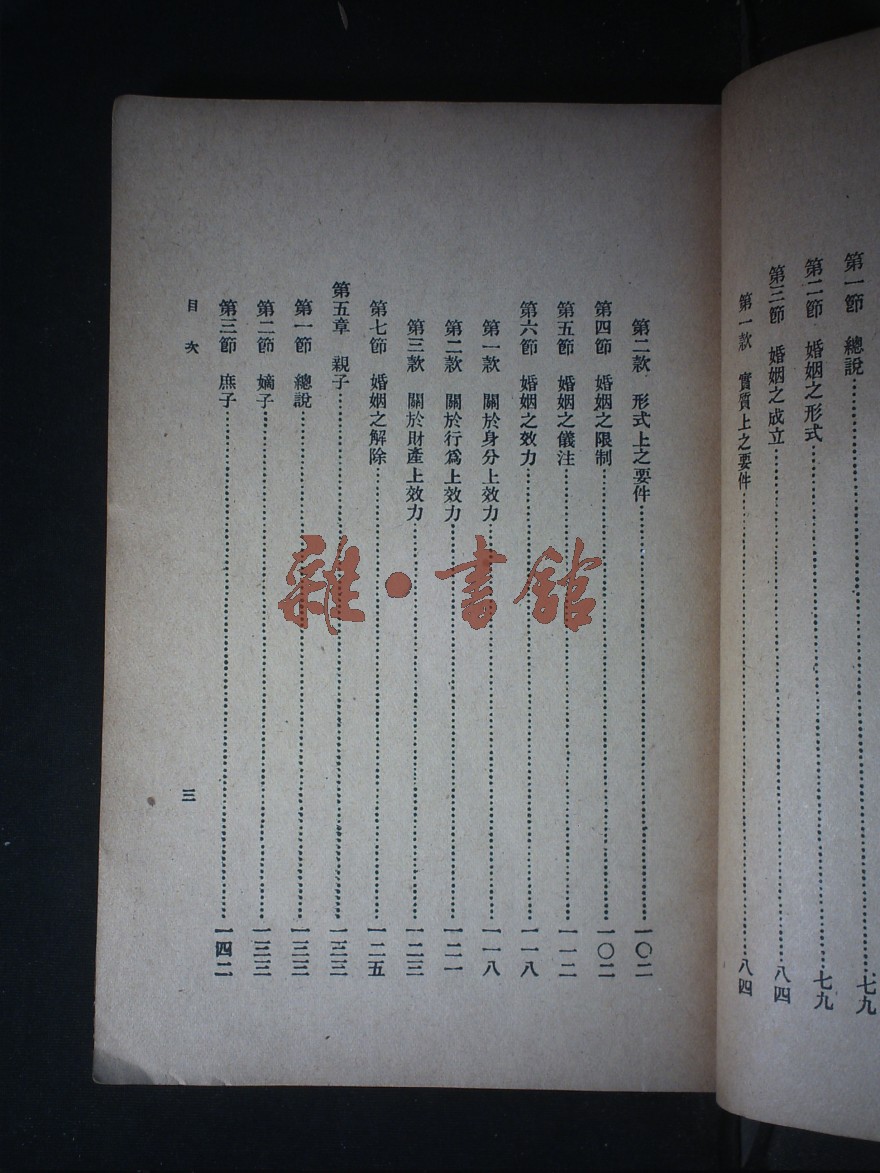 第一節　總說…………七九
第二節　婚姻之形式…………七九
第三節　婚姻之成立…………八四
第一款　實質上之要件…………八四
第二款　形式上之要件…………一〇二
第四節　婚姻之限制…………一〇二
第五節　婚姻之儀注…………一一二
第六節　婚姻之效力…………一一八
第一款　關於身分上效力…………一一八
第二款　關於行爲上效力…………一二一
第三款　關於財產上效力…………一二三
第七節　婚姻之解除…………一二五
第五章　親子…………一三三
第一節　總說…………一三三
第二節　嫡子…………一三三
第三節　庶子…………一四二
目次
三
雜·書館